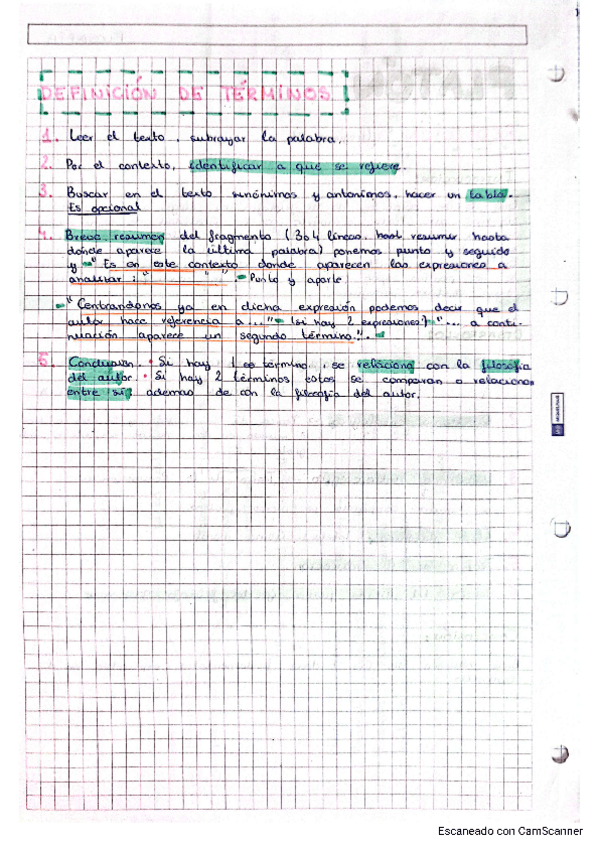 DEFINICIÓN DE TÉRMINOS
1. Leer el texto, subrayar la palabra.
2. Por el contexto, identificar a qué se refiere.
3. Buscar en el texto sinónimos y antónimos, hacer un tabla.
Es opcional
4. Breve resumen del fragmento (3 o 4 líneas, resumir hasta
donde aparece la última palabra) ponemos punto y seguido
y "Es en este contexto donde aparecen las expresiones a
analizar: " ". Punto y aparte.
"Centrándonos ya en dicha expresión podemos decir que el
autor hace referencia a..." (si hay 2 expresiones) "... a conti-
nuación aparece un segundo término:".
5. Conclusión. • Si hay 1 término, se relaciona con la filosofía
del autor. • Si hay 2 términos estos se comparan o relacionan
entre sí, además de con la filosofía del autor.
Escaneado con CamScanner